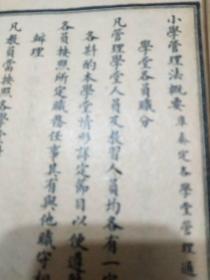 小學管理法概要 準奏定各學堂管理通
學堂各員職分
凡管理學堂人員及教習人員均各有一定
各科的本學堂情形詳定節目以便遵
各員按照所定職務任事其有與他職守相
辦理
凡教員當按照各學